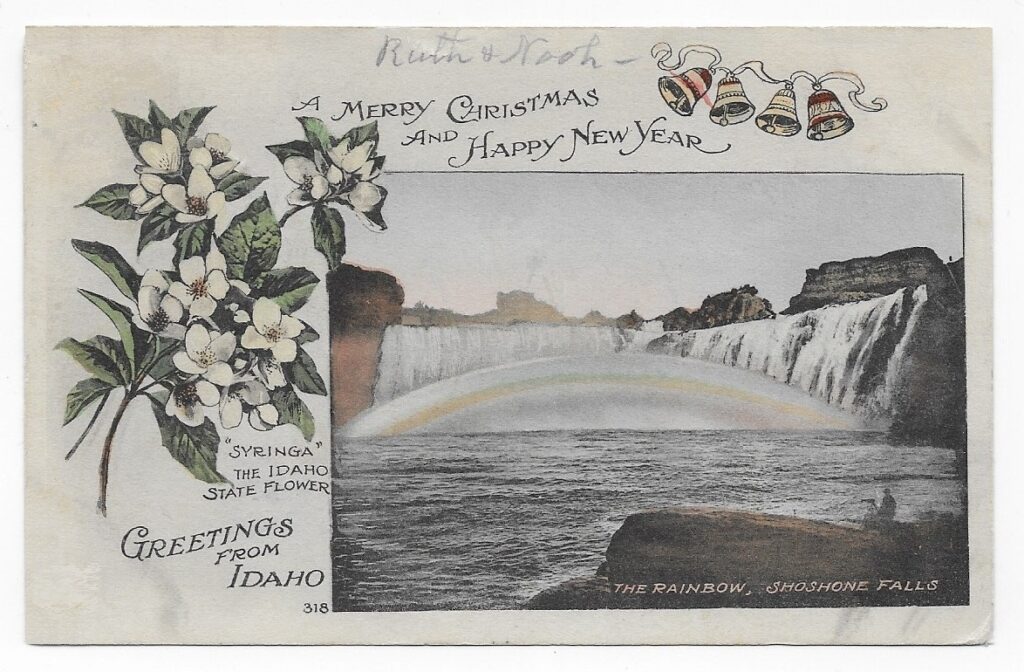 Ruth & Nooh -
A MERRY CHRISTMAS
AND HAPPY NEW YEAR
"SYRINGA"
THE IDAHO
STATE FLOWER
GREETINGS
FROM
IDAHO
318
THE RAINBOW, SHOSHONE FALLS